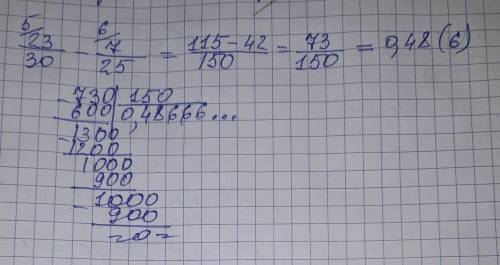 5/23/30 - 6/7/25 = 115-42/150 = 73/150 = 0,48(6)
-730 | 150
600 | 0,48666...
-1300
1200
1000
900
-1000
900
=0=